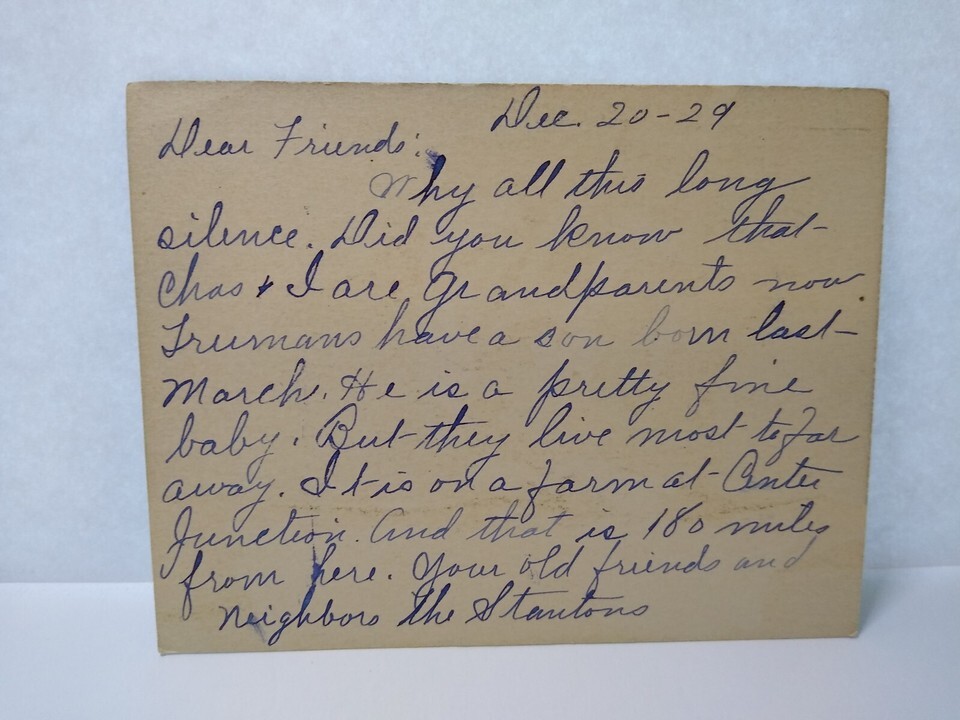 Dec. 20-29
Dear Friends:
Why all this long
silence. Did you know that
Chas & I are Grandparents now
Trumans have a son born last
March. He is a pretty fine
baby. But they live most to far
away. It is on a farm at Center
Junction. And that is 180 miles
from here. Your old friends and
Neighbors the Stantons